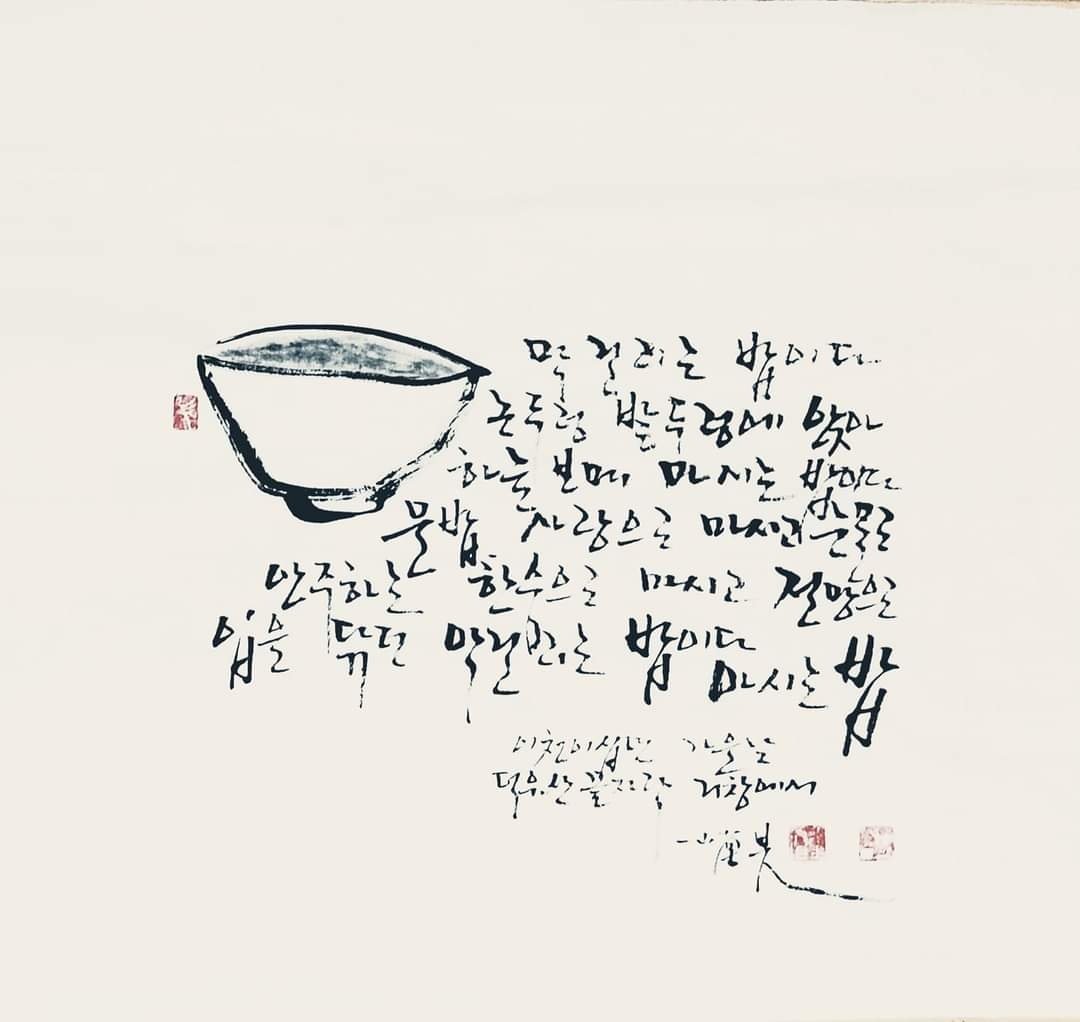 막걸리는 밥이다
논두렁 밭두렁에 앉아
하늘 보며 마시는 밥이다
물밥 사랑으로 마시면 눈물로
안주하는 한숨으로 마시고 절망으로
입을 닦던 막걸리는 밥이다 마시는 밥
이천이십년 가을날
덕유산 끝자락 거창에서
一山